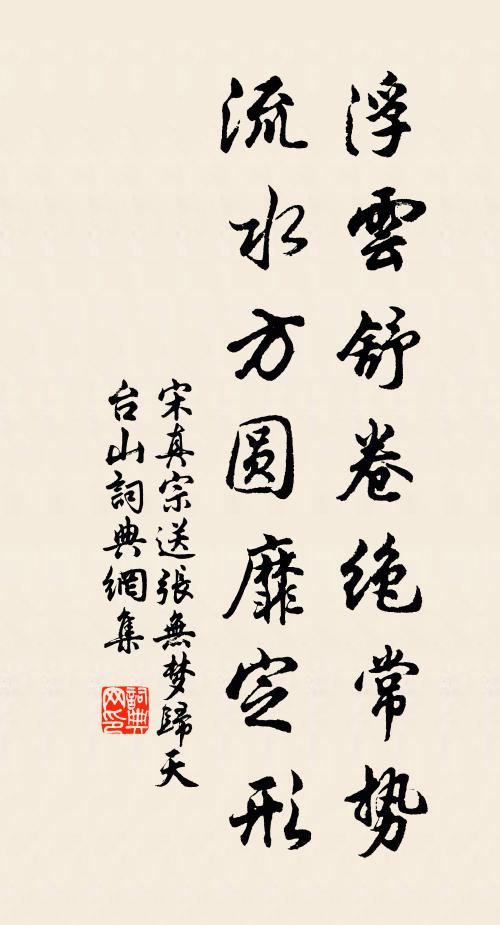 浮雲舒卷絶常勢
流水方圓靡定形
宋真宗送張無梦歸天
台山詞典網集
詞典
网印